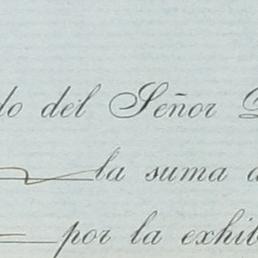 do del Señor
la suma
por la exhib